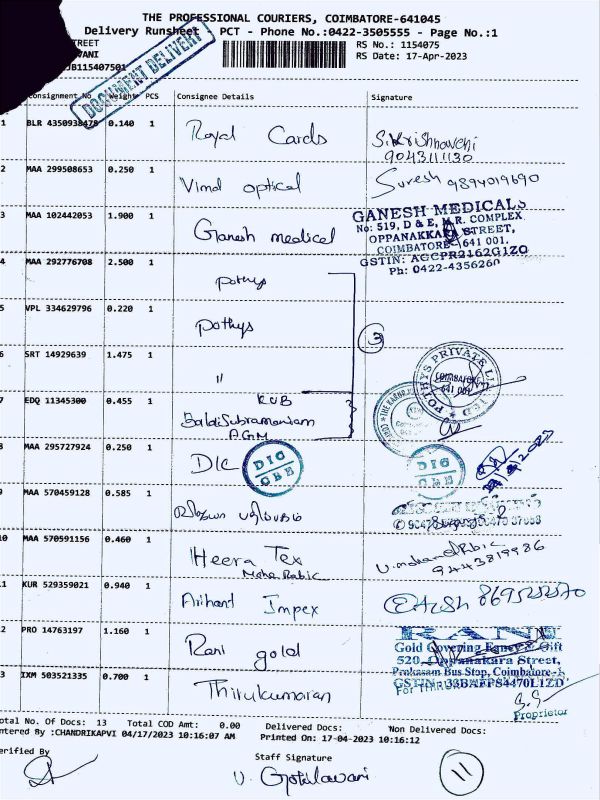 THE PROFESSIONAL COURIERS, COIMBATORE-641045
Delivery Runsheet - PCT - Phone No.:0422-3505555 - Page No.:1
STREET
RS No.: 1154075
RS Date: 17-Apr-2023
JB115407501
DOCUMENT DELIVERY
Consignment No Weight PCS Consignee Details Signature
1 BLR 4350938478 0.140 1 Royal Cards
9043111130
2 MAA 299508653 0.250 1 Vimal optical Suresh 9894019690
3 MAA 102442053 1.900 1 Ganesh medical
GANESH MEDICALS
No: 519, D & E, M.R. COMPLEX
OPPANAKKARA STREET,
COIMBATORE - 641 001.
GSTIN: AGCPR2162G1ZO
Ph: 0422-4356260
4 MAA 292776708 2.500 1 pothys
5 VPL 334629796 0.220 1 pothys
3
6 SRT 14929639 1.475 1 "
POTHYS PRIVATE LTD
COIMBATORE
641 001
7 EDQ 11345300 0.455 1 KVB
BalaSubramaniam
AGM
8 MAA 295727924 0.250 1 DIC
DIC
CBE
DIC
CBE
9 MAA 570459128 0.585 1
10 MAA 570591156 0.460 1 Heera Tex
9443819986
11 KUR 529359021 0.940 1 Arihant Impex
12 PRO 14763197 1.160 1 Rani gold
RANI
Gold Covering Fancy & Gift
520, Oppanakara Street,
Prakasam Bus Stop, Coimbatore-1.
13 IXM 503521335 0.700 1 Thirukumaran
Proprietor
Total No. Of Docs: 13 Total COD Amt: 0.00 Delivered Docs: Non Delivered Docs:
Entered By :CHANDRIKAPVI 04/17/2023 10:16:07 AM Printed On: 17-04-2023 10:16:12
Verified By Staff Signature
11